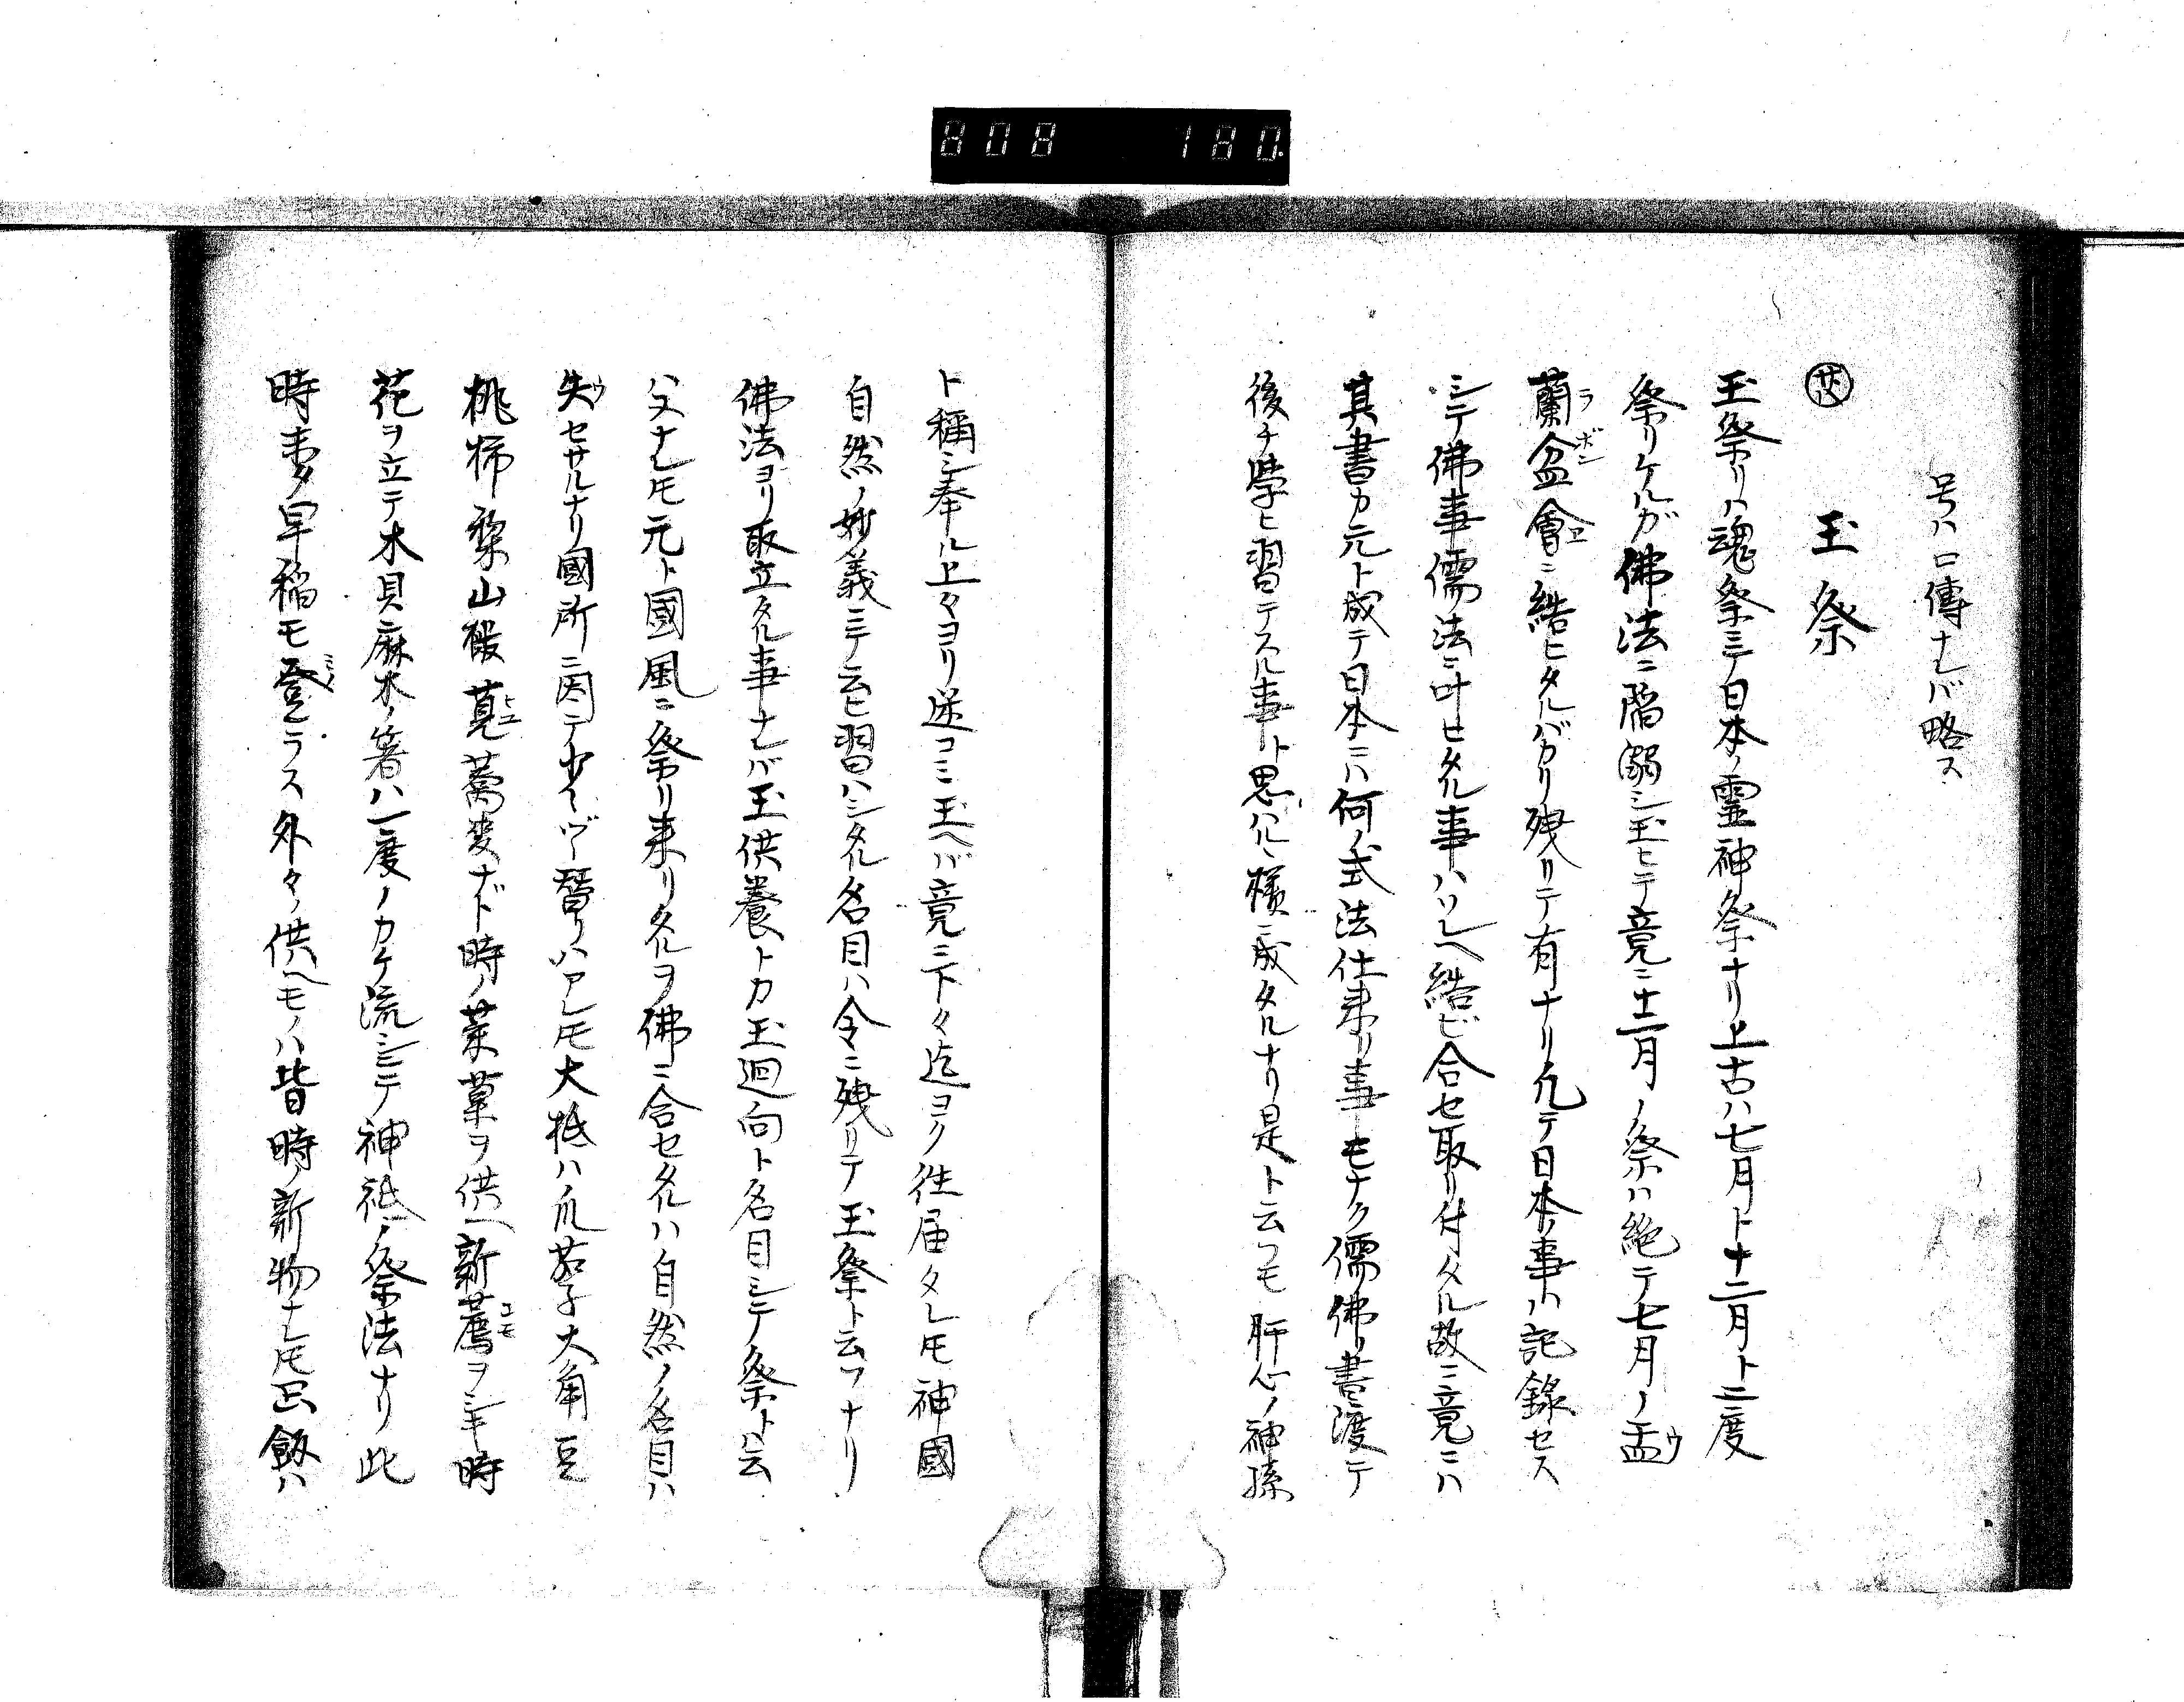 808 180.
号ハ口傳ナレバ略ス
玉祭
玉祭リハ魂祭ニテ日本ノ霊神祭ナリ上古ハ七月ト十二月ト二度
祭リケルガ佛法ニ陥溺シ玉ヒテ竟ニ十二月ノ祭ハ絶テ七月ノ盂
蘭盆會ニ結ヒタルバカリ残リテ有ナリ凡テ日本ノ事ハ記録セス
シテ佛事儒法ニ叶セタル事ハソレヘ結ビ合セ取リ付タル故ニ竟ニハ
其書カ元ト成テ日本ニハ何ノ式法仕来リ事モナク儒佛ノ書渡テ
後チ学ヒ習テスル事ト思ハルヽ様ニ成タルナリ是ト云フモ肝心ノ神孫
ト稱シ奉ル上々ヨリ迷コミ玉ヘバ竟ニ下々迄ヨク徃届タレ𪜈神國
自然ノ妙義ニテ云ヒ習ハシタル名目ハ今ニ残リテ玉祭ト云フナリ
佛法ヨリ取立タル事ナレバ玉供養トカ玉廻向ト名目シテ祭トハ云
ハヌナレ𪜈元ト國風ニ祭リ来リタルヲ佛ニ合セタルハ自然ノ名目ハ
失セサルナリ國所ニ因テ少シヅヽ替リハアレ𪜈大抵ハ瓜茄子大角豆
桃柿梨山椒莧蕎麦ナド時ノ菜菓ヲ供ヘ新薦ヲシキ時
花ヲ立テ木具麻木ノ箸ハ一度ノカケ流シニテ神祇ノ祭法ナリ此
時未タ早稲モ登ラス外々ノ供ヘモノハ皆時ノ新物ナレ𪜈飯ハ